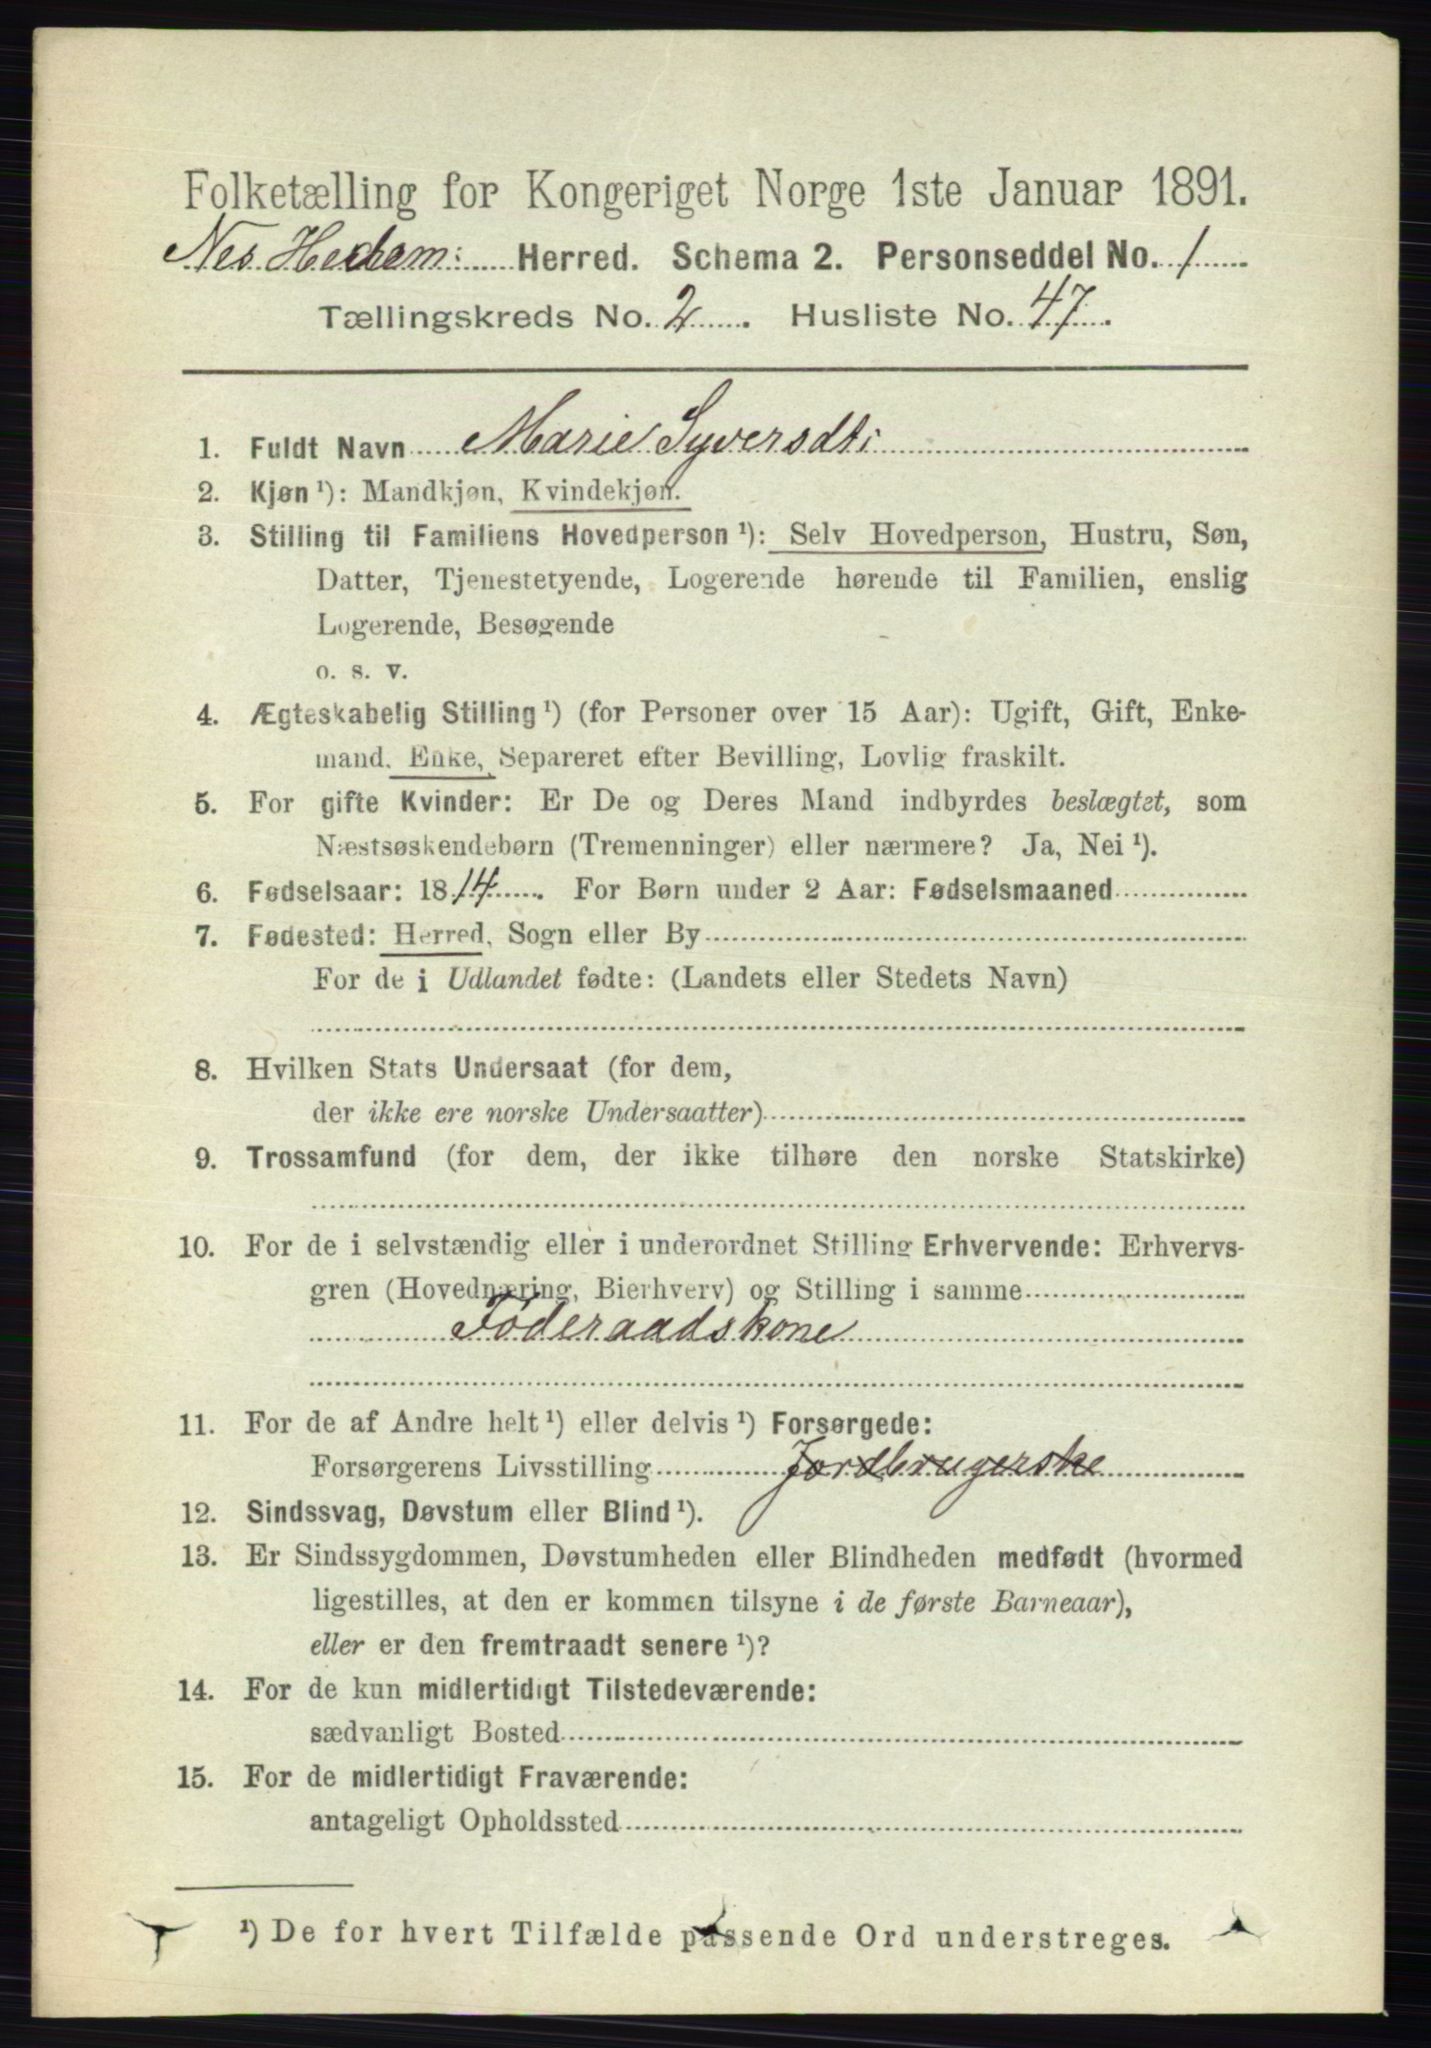 Folketælling for Kongeriget Norge 1ste Januar 1891.
Nes Hedem: Herred. Schema 2. Personseddel No. 1
Tællingskreds No. 2. Husliste No. 47.
1. Fuldt Navn Marie Syversdt:
2. Kjøn ¹): Mandkjøn, Kvindekjøn.
3. Stilling til Familiens Hovedperson ¹): Selv Hovedperson, Hustru, Søn,
Datter, Tjenestetyende, Logerende hørende til Familien, enslig
Logerende, Besøgende
o. s. v.
4. Ægteskabelig Stilling ¹) (for Personer over 15 Aar): Ugift, Gift, Enke-
mand, Enke, Separeret efter Bevilling, Lovlig fraskilt.
5. For gifte Kvinder: Er De og Deres Mand indbyrdes beslægtet, som
Næstsøskendebørn (Tremenninger) eller nærmere? Ja, Nei ¹).
6. Fødselsaar: 1814. For Børn under 2 Aar: Fødselsmaaned
7. Fødested: Herred, Sogn eller By
For de i Udlandet fødte: (Landets eller Stedets Navn)
8. Hvilken Stats Undersaat (for dem,
der ikke ere norske Undersaatter)
9. Trossamfund (for dem, der ikke tilhøre den norske Statskirke)
10. For de i selvstændig eller i underordnet Stilling Erhvervende: Erhvervs-
gren (Hovednæring, Bierhverv) og Stilling i samme
Föderaadskone
11. For de af Andre helt ¹) eller delvis ¹) Forsørgede:
Forsørgerens Livsstilling Jordbrugerske
12. Sindssvag, Døvstum eller Blind ¹).
13. Er Sindssygdommen, Døvstumheden eller Blindheden medfødt (hvormed
ligestilles, at den er kommen tilsyne i de første Barneaar),
eller er den fremtraadt senere ¹)?
14. For de kun midlertidigt Tilstedeværende:
sædvanligt Bosted
15. For de midlertidigt Fraværende:
antageligt Opholdssted
¹) De for hvert Tilfælde passende Ord understreges.